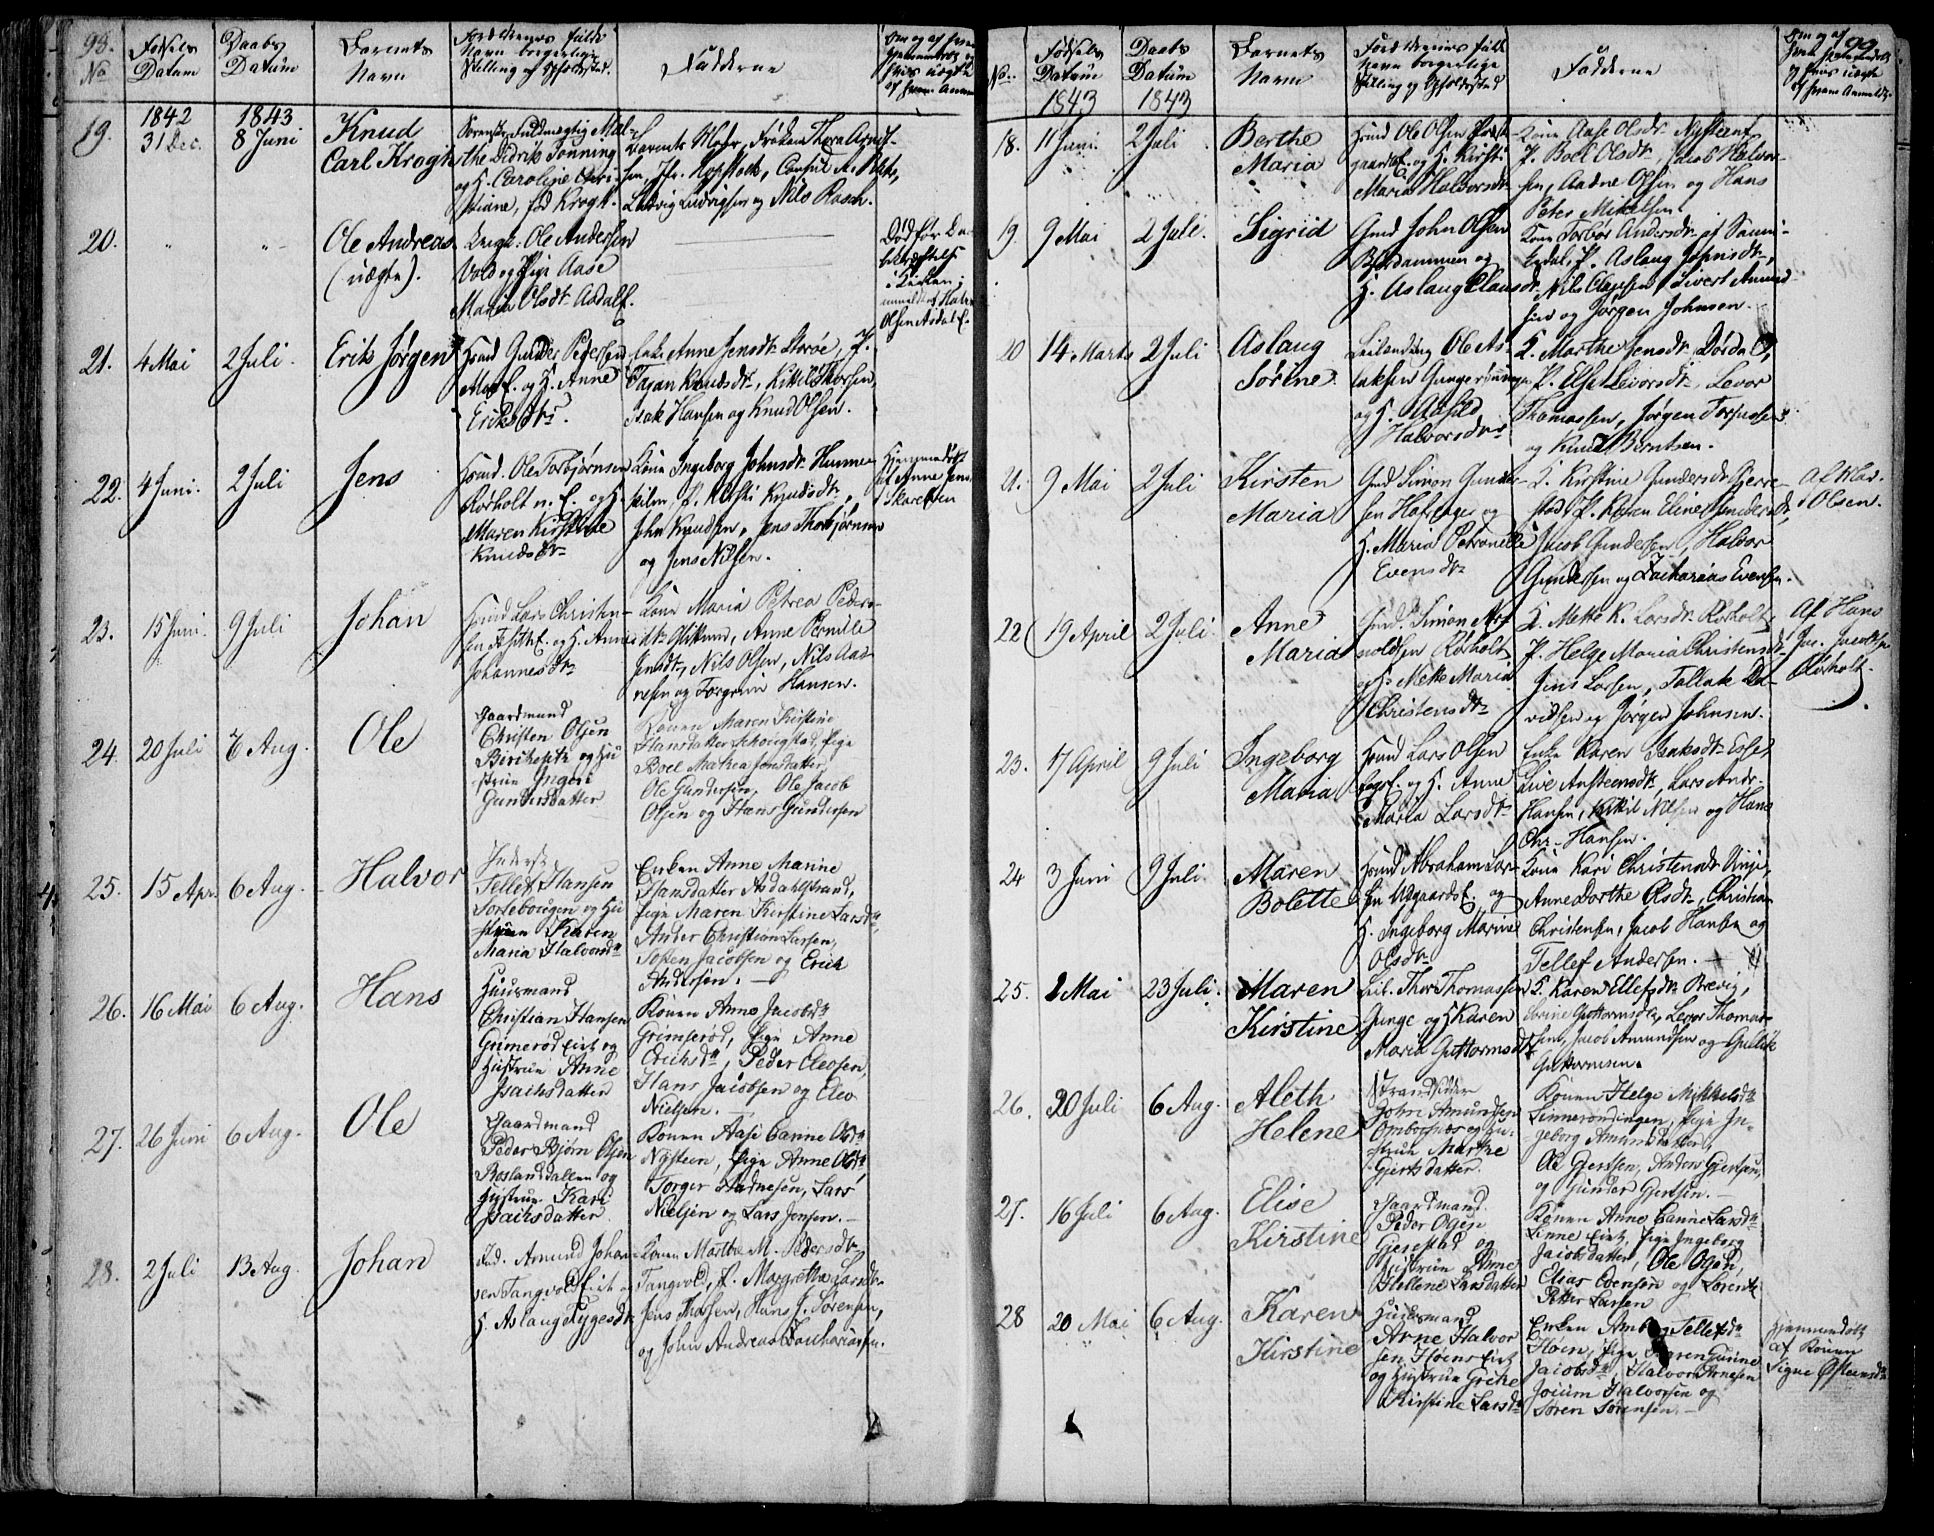 98.
No
Fødsels
Datum
Daabs
Datum
Barnets
Navn
Forældrenes fulde
Navn borgerlige
Stilling og Opholdssted.
Fadderne
19.
1842
31 Dec.
1843
8 Juni
Knud
Carl Krogh
Sorenskr. Fuldmægtig Mal-
the Didrik Tønning
og H. Caroline Chri-
stiane, fød Krogh.
Barnets Moder, Frøken Thora
Consul
Ludvig Ludvigsen og Nils Rasch.
20.
Ole Andreas
(uægte).
Ole Andersen
Vold og Pige Aase
Maria Olsdtr Asdal E.
Død før Da-
bekræftelse
i Kirken;
anmeldt af Halv.
Olsen Asdal E.
21.
4 Mai
2 Juli.
Erik Jørgen
Huusmd Gunder Pedersen
og H. Anne
Eriksdtr.
Enke Anne Jensdtr Storøe, P.
Tajan Knudsdtr, Kittil Thorsen,
Isak Hansen og Knud Olsen.
22.
4 Juni.
2 Juli
Jens
Huusmd. Ole Torbjørnsen
Rørholt n. E. og H.
Maren Kirstine
Knudsdtr
Kone Ingeborg Johnsdtr Hummer-
kilen, P. Kirsti Knudsdtr,
John Knudsen, Jens Thorbjørnsen
og Jens Nilsen.
Hjemmedøbt
af Anne Jens
23.
15 Juni.
9 Juli
Johan
Huusmd Lars Christen-
sen og H. Anne
Johannesdtr
Kone Maria Petrea Peders-
dtr Anne Pernille
Jensdtr, Nils Olsen, Nils Aad-
nesen og Torgrim Hansen.
24.
20 Juli
6 Aug.
Ole
Gaardmand
Christen Olsen
Birkeseth og Hu
strue Ingeri
Gundersdatter
Konen Maren Kirstine
Hansdatter Schougstad, Pige
Boel Mathea Jensdatter,
Ole Gundersen, Ole Jacob
Olsen og Hans Gundersen
25.
15 Apr.
6 Aug.
Halvor
Inderst
Tellef Hansen
Torteborgen og Hu
strue Karen
Maria Halvorsdtr
Enken Anne Marine
Hansdatter Asdahlstrand,
Pige Maren Kirstine Larsdtr,
Anders Christian Larsen,
Tosten Jacobsen og Erich
Andersen. —
26.
16 Mai
6 Aug.
Hans
Huusmand
Christian Hansen
Grimerød Eiet og
Hustrue Anne
Isachsdatter
Konen Anne Jacobsdtr
Grimerød, Pige Anne
Erichsdtr, Peder Cleosen,
Hans Jacobsen og Cleo
Nielsen. —
27.
26 Juni
6 Aug.
Ole
Gaardmand
Peder Bjørn Olsen
Roslandsdallen og
Hustrue Kari
Isachsdatter
Konen Aase Carine Olsdtr
Nysteen, Pige Anne Olsdtr,
Torger Aadnesen, Lars
Nielsen og Lars Jensen. —
28.
2 Juli
13 Aug.
Johan
Ind. Amund Johan-
sen Tangvold Eiet og
H. Aslaug Tygesdtr
Konen Marthe M. Pedersdtr
Tangvold, P. Margrethe Larsdtr.
Jens Thorsen, Hans J. Sørensen,
og John Andreas Zachariassen.
99.
No.
Fødsels
Datum
1843
Daabs
Datum
1843
Barnets
Navn
Forældrenes fulde
Navn borgerlige
Stilling og Opholdssted
Fadderne
18.
11 Juni.
2 Juli
Berthe
Maria
Huusmd Ole Olsen
og H. Kirsti
Maria Halvorsdtr
Kone Aase Olsdtr Nysteen,
P. Boel Olsdtr, Jacob Halvor-
sen, Aadne Olsen og Hans
Peter Mikelsen.
19.
9 Mai
2 Juli.
Sigrid
Gmd John Olsen
og
H. Aslaug Clausdtr
Kone Torbor Andersdtr af Sanni-
kedal, P. Aslaug Johnsdtr,
Nils Clausen, Sivert Amund-
sen og Jørgen Johnsen.
20
14 Marts
2 Juli
Aslaug
Sørine.
Leilending Ole As-
laksen
og H. Aashild
Halvorsdtr
K. Marthe Jensdtr Dørdal,
P. Else Levorsdtr, Levor
Thomassen, Jørgen
og Knud Berntsen.
21.
9 Mai
2 Juli
Kirsten
Maria
Gmd Simon Gunder-
sen og
H. Maria Petronelle
Evensdtr
K. Kirstine Gundersdtr Gjerre-
stad, P. Karen Eline Gundersdtr,
Jacob Gundersen, Halvor
Gundersen og Zacharias Evensen.
Af Hal.
Olsen.
22
19 April
2 Juli.
Anne
Maria
Gmd. Simon Ar-
noldsen Rørholt
og H. Mette Maria
Christensdtr
K. Mette K. Larsdtr Rørholt,
P. Helge Maria Christensdtr
Jens Larsen, Tallak Da-
vidsen og Jørgen Johnsen.
Af Hans
Rørholt.
23.
17 April
9 Juli
Ingeborg
Maria
Huusmd Lars Olsen
og H. Anne
Maria Larsdtr
Enke Karen Isaksdtr
Live Anstensdtr, Lars Andr.
Hansen, Kittil Nilsen og Hans
Chr. Hansen.
24
3 Juni
9 Juli.
Maren
Bolette
Huusmd Abraham Lar-
sen og
H. Ingeborg Marine
Olsdtr
Kone Kari Christensdtr
Anne Dorthe Olsdtr, Christian
Christensen, Jacob Hansen og
Tellef Andersen.
25.
2 Mai
23 Juli.
Maren
Kirstine
Leil. Thor Thomassen
Gunge og H. Karen
Maria Guttormsdtr
K. Karen Ellefsdtr Brevig,
Guttormsdtr, Levor Thomas-
sen, Jacob Amundsen og Gullik
Guttormsen.
26.
20 Juli
6 Aug.
Aleth
Helene
Strandsidder
John Amundsen
Ombordsnes og Hu-
strue Marthe
Gjertsdatter.
Konen Helge Mikkelsdtr
Pige In-
geborg Amundsdatter,
Ole Gjertsen, Anders Gjertsen,
og Gunder Gjertsen. —
27.
16 Juli
6 Aug.
Elise
Kirstine
Gaardmand
Peder Olsen
Gjerestad og
Hustrue Anne
Hellene Larsdatter
Konen Anne Carine Larsdtr
Pige Ingeborg
Jacobsdatter, Ole Olsen,
Elias Evensen og Lorentz
Petter Larsen
28
20 Mai
6 Aug.
Karen
Kirstine
Huusmand
Arne Halvor
sen Høens Eiet
og Hustrue Grethe
Kirstine Larsdtr
Enken Tellefsdtr
Høen, Pige Karen Gurine
Jacobsdtr, Halvor Arnesen
Joium Halvorsen og
Søren Sørensen. —
Hjemmedøbt
af Konen
Signe Østensdtr